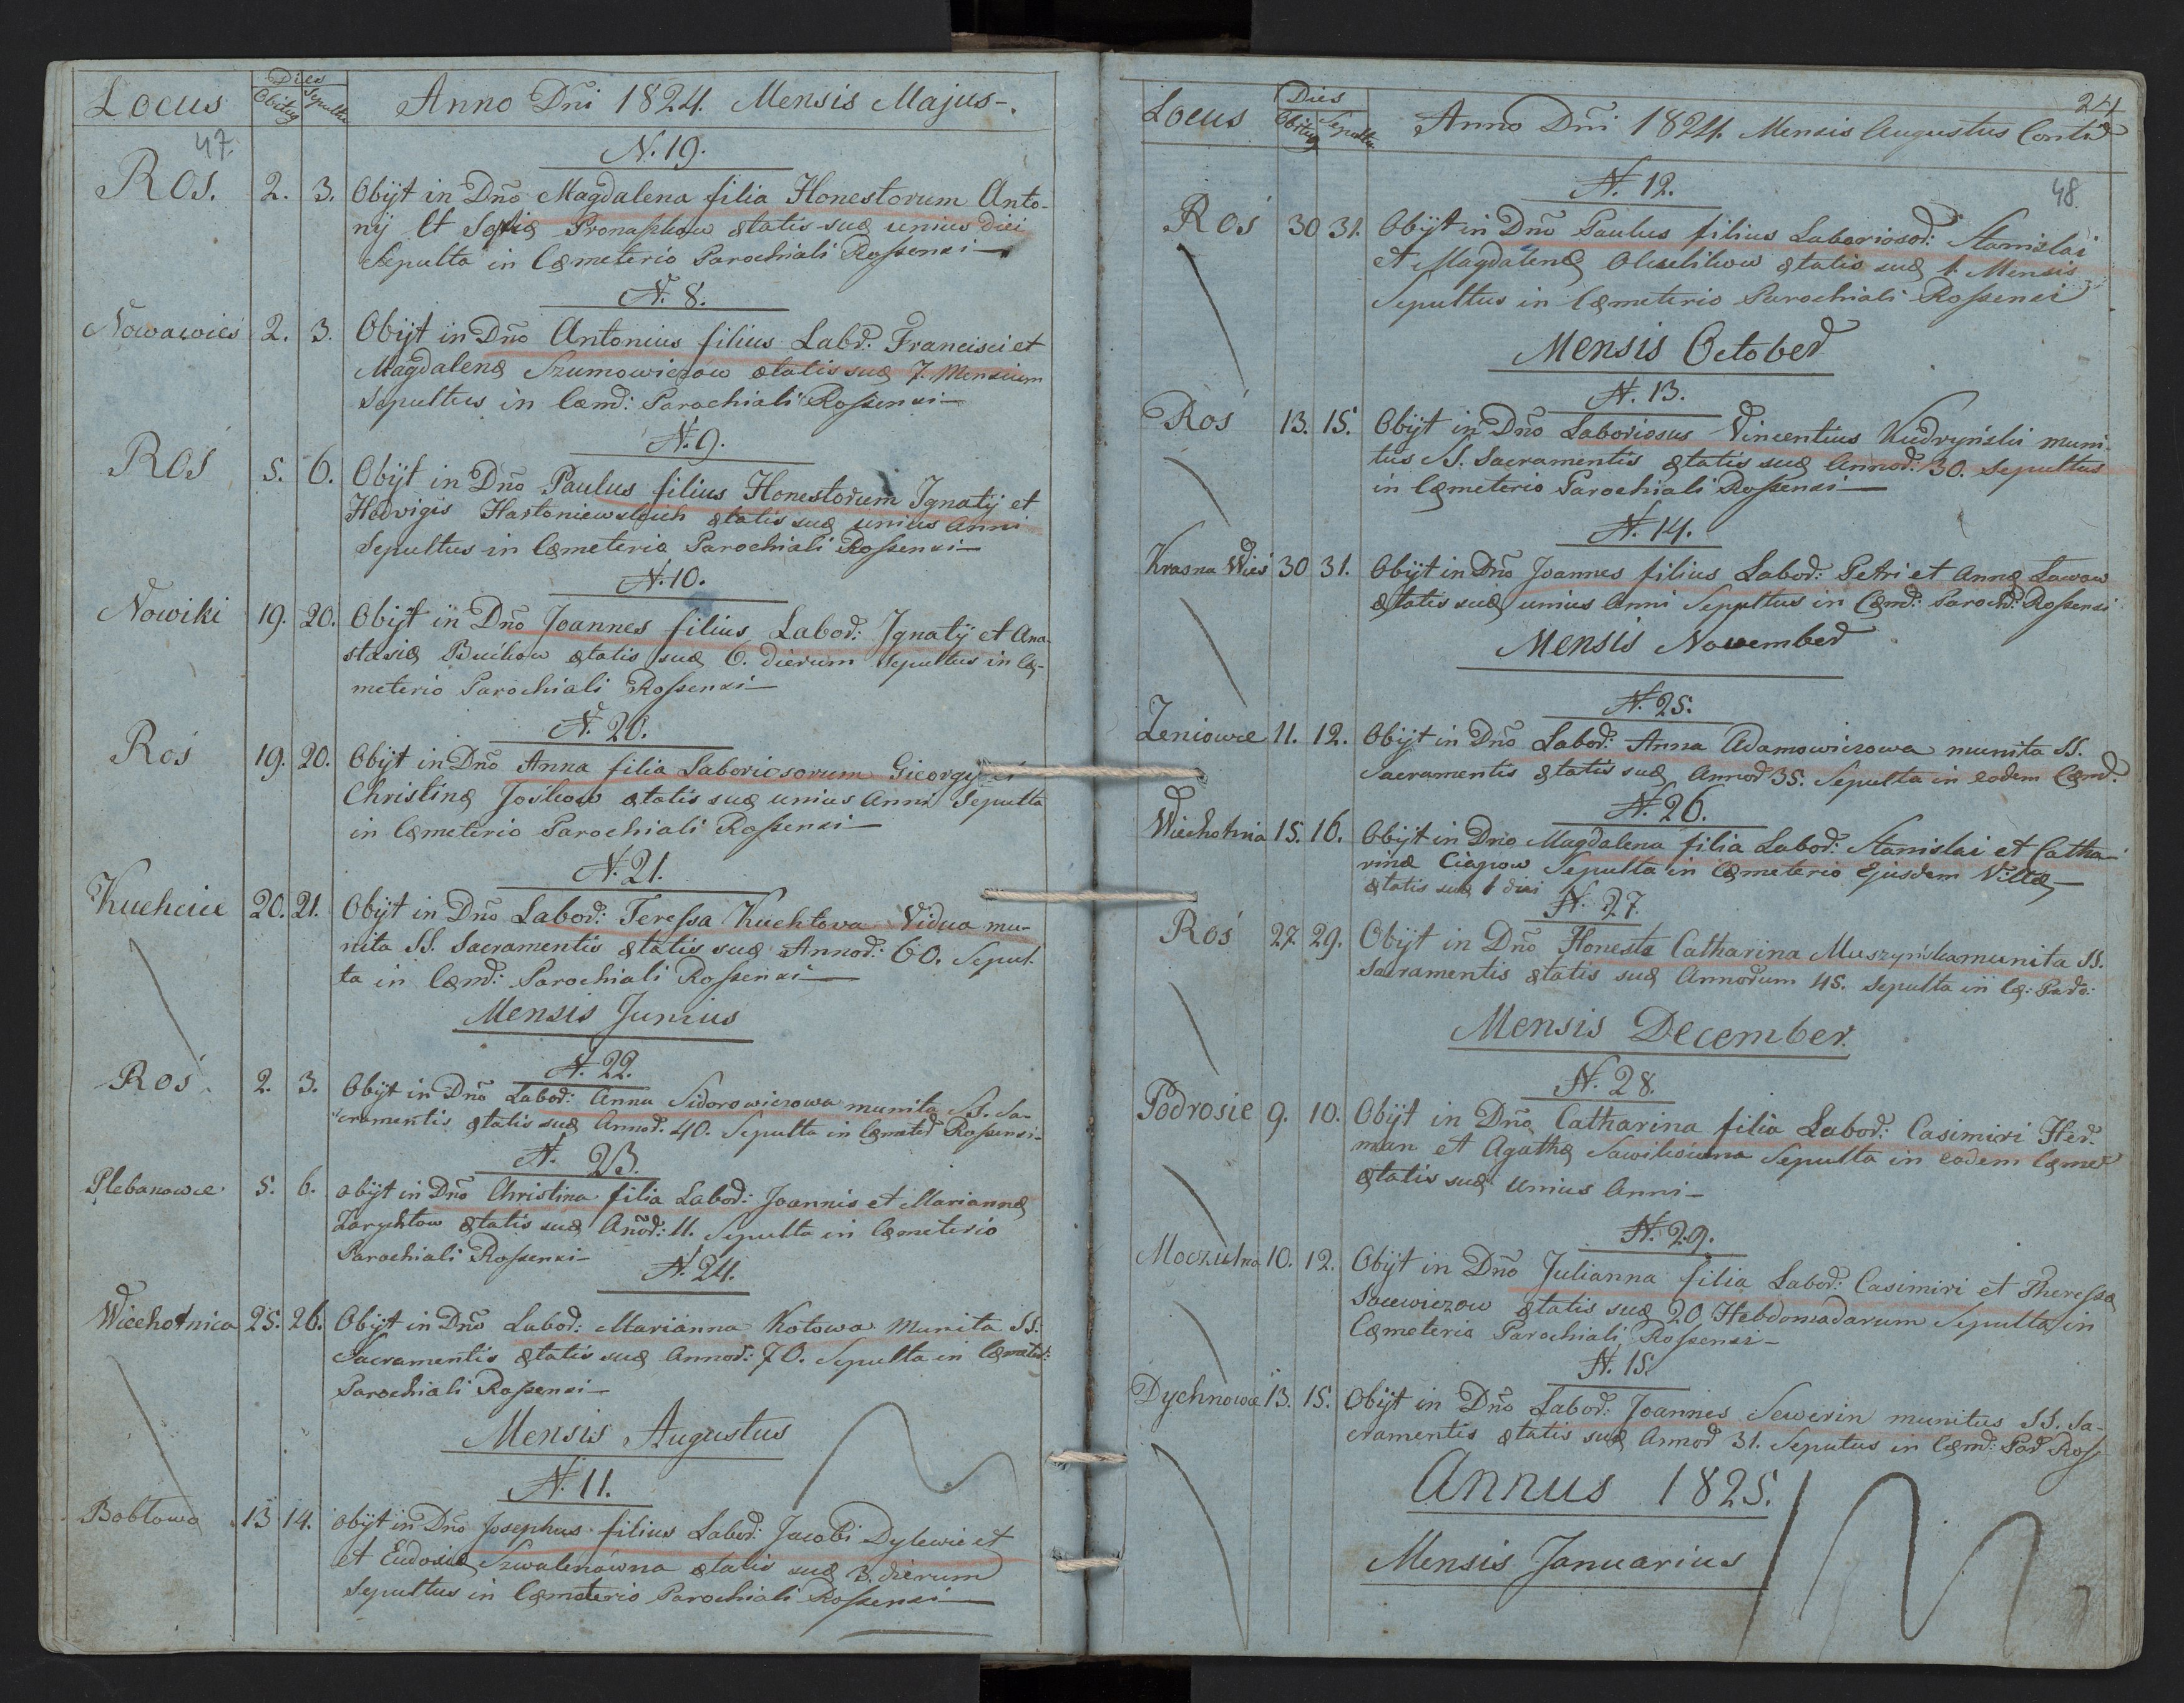 Locus
Dies
Obitus Sepultu
Anno Dni 1824. Mensis Majus
47.
N. 19.
Ros. 2. 3. Obijt in Dño Magdalena filia Honestorum Anto-
nij et Sofię ętatis suę unius diei
Sepulta in Cęmeterio Parochiali Rossensi
N. 8.
Nowawieś 2. 3. Obijt in Dño Antonius filius Labr: Francisci et
Magdalenę Szumowiczow ętatis suę 7. Mensium
Sepultus in Cæmr: Parochiali Rossensi
N. 9.
Roś 5. 6. Obijt in Dño Paulus filius Honestorum Ignatij et
Hedvigis ętatis suę unius Anni
Sepultus in Cæmeterio Parochiali Rossensi
N. 10.
Nowiki 19. 20. Obijt in Dño Joannes filius Labor: Ignatij et Ana-
stasię ętatis suę 6. dierum Sepultus in Cę-
meterio Parochiali Rossensi
N. 20.
Roś 19. 20. Obijt in Dño Anna filia Laboriosorum Gieorgy et
Christinę Jośkow ętatis suę unius Anni Sepulta
in Cęmeterio Parochiali Rossensi
N. 21.
Kuchcice 20. 21. Obijt in Dño Labor: Teressa Kuchtowa Vidua mu-
nita SS. Sacramentis ętatis suę Annor: 60. Sepul-
ta in Cæmr: Parochiali Rossensi
Mensis Junius
N. 22.
Roś 2. 3. Obijt in Dño Labor: Anna Sidorowiczowa munita SS. Sa-
cramentis ętatis suę Annor. 40. Sepulta in Cęmeter Rossensi
N. 23.
Plebanowce 5. 6. Obijt in Dño Christina filia Labor: Joannis et Mariannę
Zarychtow ętatis suę Añor: 11. Sepulta in Cęmeterio
Parochiali Rossensi
N. 24.
Wiechotnica 25. 26. Obijt in Dño Labor: Marianna Kotowa Munita SS.
Sacramentis ętatis suę Annor: 70. Sepulta in Cęmeter:
Parochiali Rossensi
Mensis Augustus
N. 11.
Bobłowo 13 14. Obijt in Dño Josephus filius Labor: Jacobi Dylewic et
et Eudosię ętatis suę 3. dierum
Sepultus in Cęmeterio Parochiali Rossensi
24
Locus
Dies
Obitus Sepultu
Anno Dñi 1824 Mensis Augustus Contr
48.
N. 12.
Roś 30 31. Obijt in Dño Paulus filius Laboriosor: Stanislai
et Magdalenę ętatis suę 1. Mensis
Sepultus in Cęmeterio Parochiali Rossensi
Mensis October
N. 13.
Roś 13. 15. Obijt in Dño Laboriosus Vincentius Kudryński muni-
tus SS. Sacramentis ętatis suę Annor: 30. Sepultus
in Cęmeterio Parochiali Rossensi
N. 14.
Krasna Wieś 30 31. Obijt in Dño Joannes filius Labor: Petri et Annę Lawow
ętatis suę unius Anni Sepultus in Cęmr: Paroch: Rossensi
Mensis November
N. 25.
Zeniowce 11. 12. Obijt in Dño Labor: Anna Adamowiczowa munita SS.
Sacramentis ętatis suę Annor 35. Sepulta in eodem Cęmr.
N. 26.
Wiechotnia 15. 16. Obijt in Dño Magdalena filia Labor: Stanislai et Catha-
rinæ Ciapow Sepulta in Cęmeterio Ejusdem Villę
ętatis suę 1 diei
N. 27.
Roś 27. 29. Obijt in Dño Honesta Catharina Muszyńska munita SS.
Sacramentis ętatis suę Annorum 45. Sepulta in Cę: Paro:
Mensis December.
N. 28.
Podrosie 9. 10. Obijt in Dño Catharina filia Labor: Casimiri Her-
man et Agathę Sawikówna Sepulta in eodem Cęmer
ętatis suę unius Anni
N. 29.
Moczulna 10. 12. Obijt in Dño Julianna filia Labor: Casimiri et Theressę
Sacewiczow ętatis suę 20 Hebdomadarum Sepulta in
Cęmeterio Parochiali Rossensi
N. 15.
Dychnowce 13. 15. Obijt in Dño Labor: Joannes Sewerin munitus SS. Sa-
cramentis ętatis suę Annor 31. Seputus in Cęmr: Par Ross
Annus 1825.
Mensis Januarius